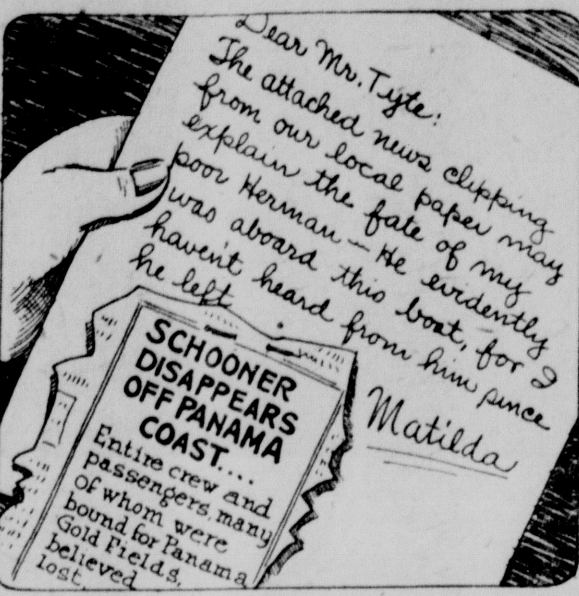 Dear Mr. Tyte:
The attached news clipping
from our local paper may
explain the fate of my
poor Herman — He evidently
was aboard this boat, for I
haven't heard from him since
he left
Matilda
SCHOONER
DISAPPEARS
OFF PANAMA
COAST....
Entire crew and
passengers, many
of whom were
bound for Panama
Gold Fields,
believed
lost.